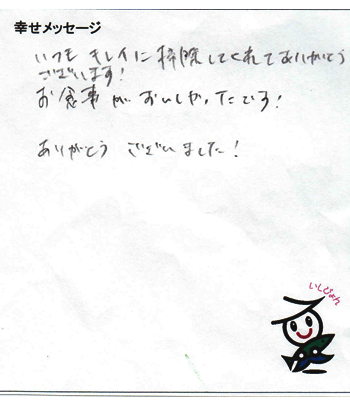 幸せメッセージ
いつも キレイに掃除してくれてありがとう
ございます！
お食事が おいしかったです！
ありがとう ございました！
いしぴょん